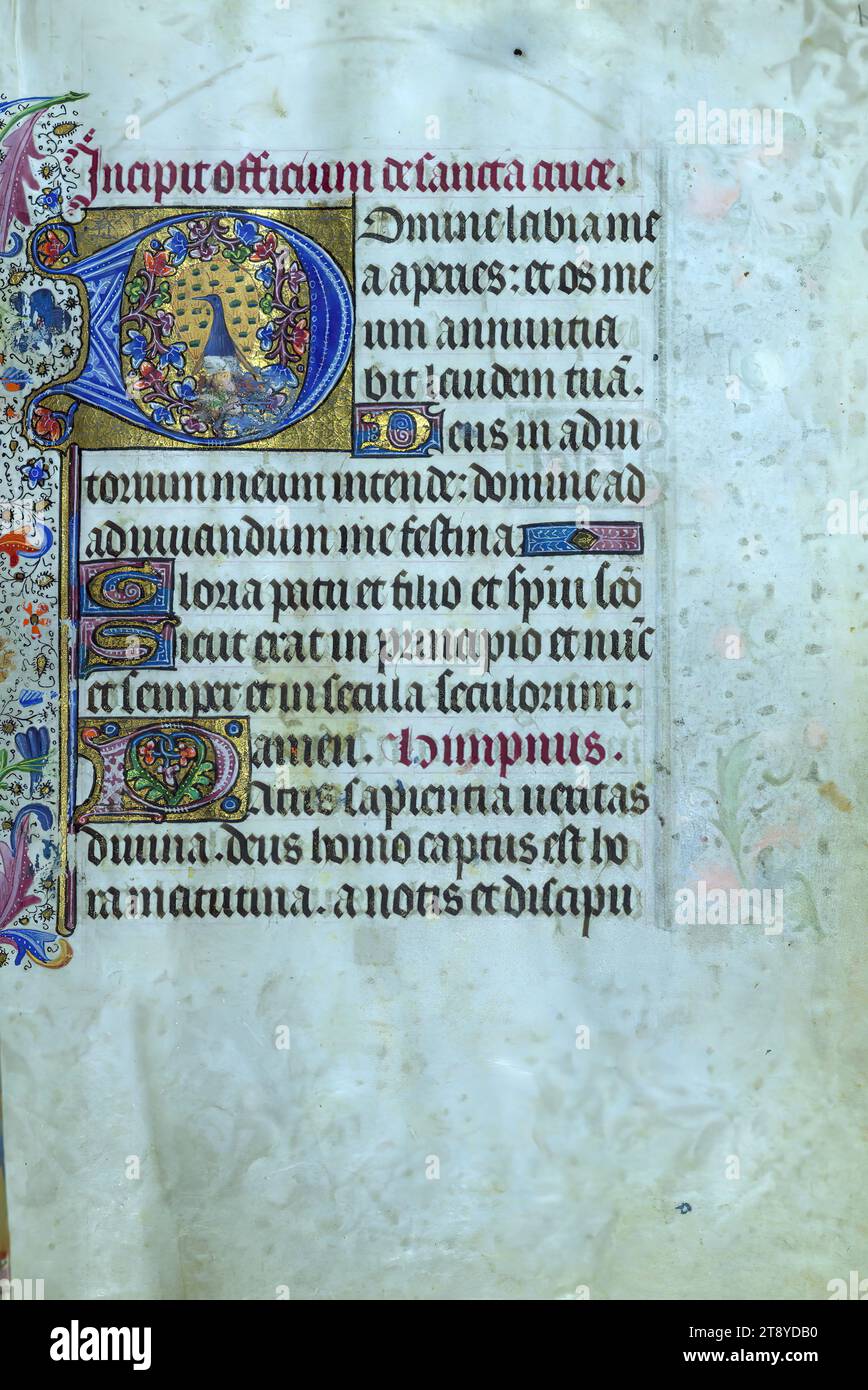 Incipit officium de sancta cruce.
Domine labia me
a aperies: et os me
um annuntia
bit laudem tuā.
Deus in adiu
torium meum intende: domine ad
adiuuandum me festina
Gloria patri et filio et sp̄iu scō
Sicut erat in principio et nūc
et semper et in secula seculorum:
amen. Himpnus.
Patris sapientia ueritas
diuina. deus homo captus est ho
ra matutina. a notis et discipu
alamy
Image ID: 2T8YDB0
www.alamy.com